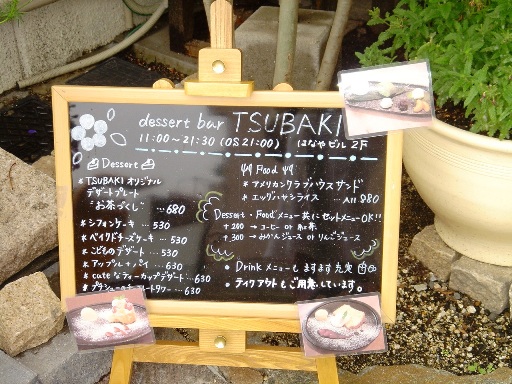 dessert bar TSUBAKI
11:00〜21:30 (OS 21:00) はなやビル 2F
Dessert
* TSUBAKI オリジナル
デザートプレート
"お茶づくし" … 680
* シフォンケーキ … 530
* ベイクドチーズケーキ … 530
* こどものデザート … 530
* アップルパイ … 630
* cuteなティーカップデザート … 630
* プラシューのチョコレートタワー … 630
Food
* アメリカンクラブハウスサンド
* エッグハヤシライス … ALL 880
Dessert・Foodメニュー共にセットメニューOK!!
+200 → コーヒー or 紅茶
+300 → みかんジュース or りんごジュース
• Drinkメニューもますます充実
• テイクアウトもご用意しています。